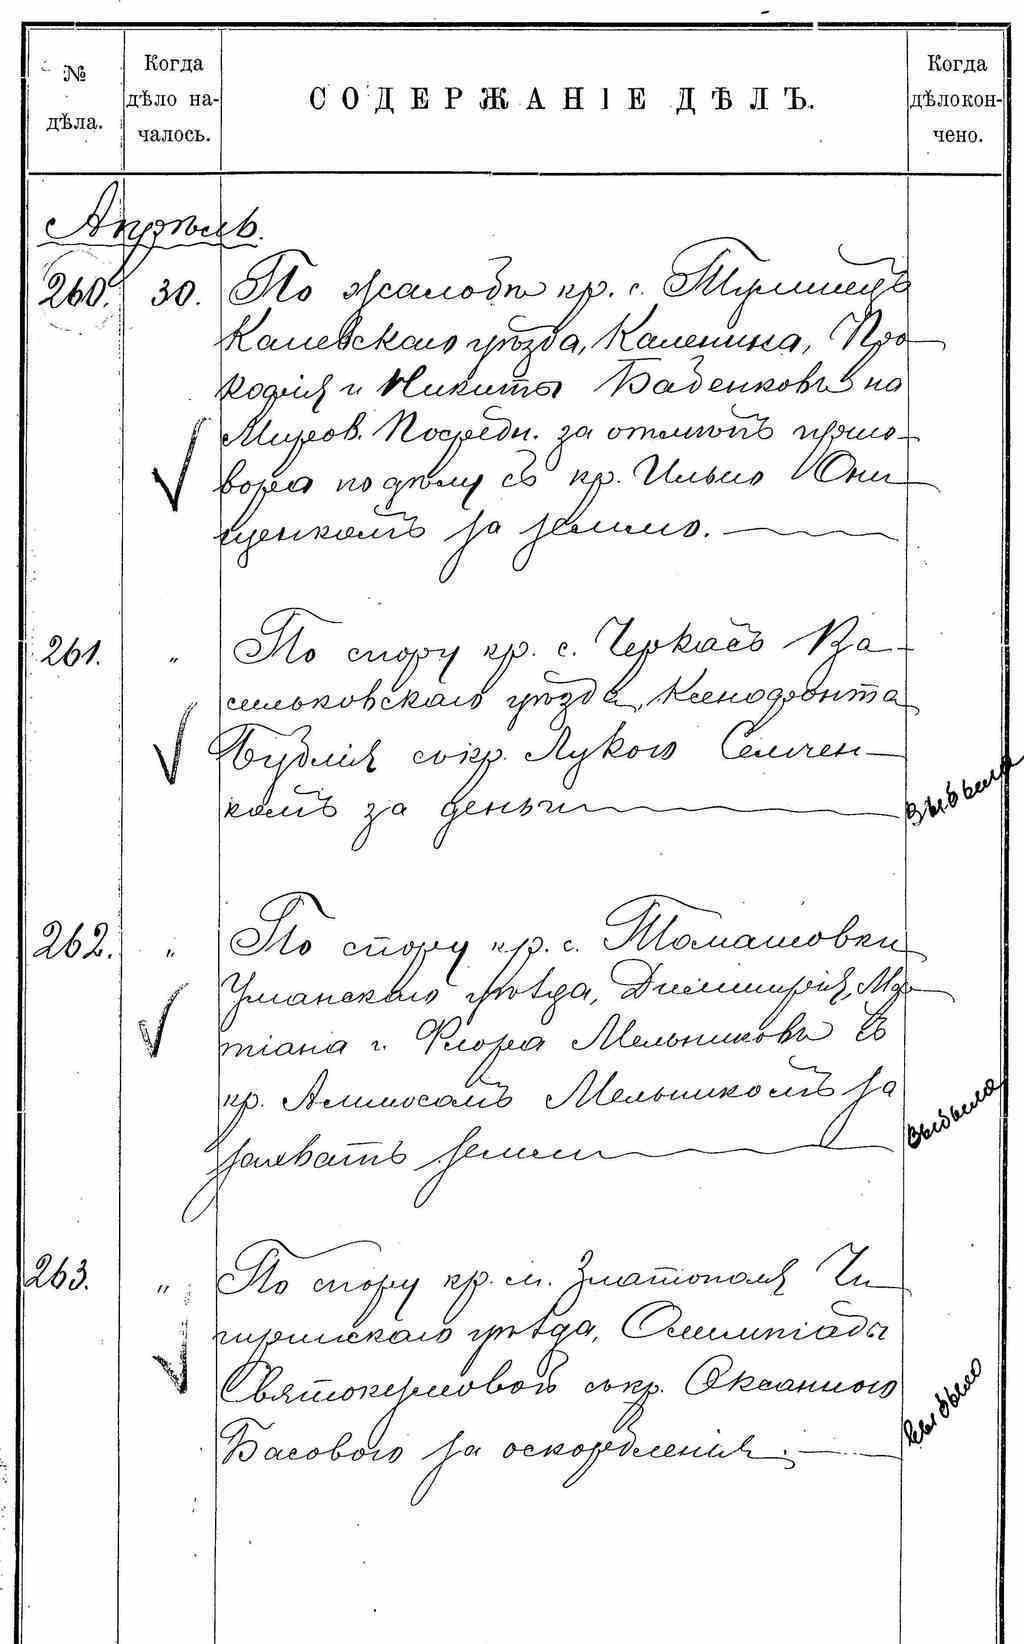 № дѣла.
Когда дѣло на-чалось.
СОДЕРЖАНІЕ ДѢЛЪ.
Когда дѣло кон-чено.
Апрѣль.
260. 30. По жалобѣ кр. с. Тулинецъ
Каневскаго уѣзда, Каленика, Про-
кофія и Никиты Бабенковъ на
Миров. Посредн. за отмѣнъ приго-
вора по дѣлу съ кр. Ильею Они-
щенкомъ за землю.
261. " По спору кр. с. Черкасъ Ва-
сильковскаго уѣзда, Ксенофонта
Бублія съ кр. Лукою Семчен-
комъ за деньги
выбыло
262. " По спору кр. с. Томашовки
Уманскаго уѣзда, Димитрія, Ма-
тіана и Флора Мельниковъ съ
кр. Аммосомъ Мельникомъ за
захватъ земли
выбыло
263. " По спору кр. м. Златополя Чи-
гиринскаго уѣзда, Олимпіады
съ кр. Оксанною
Басовою за оскорбленія.
выбыло